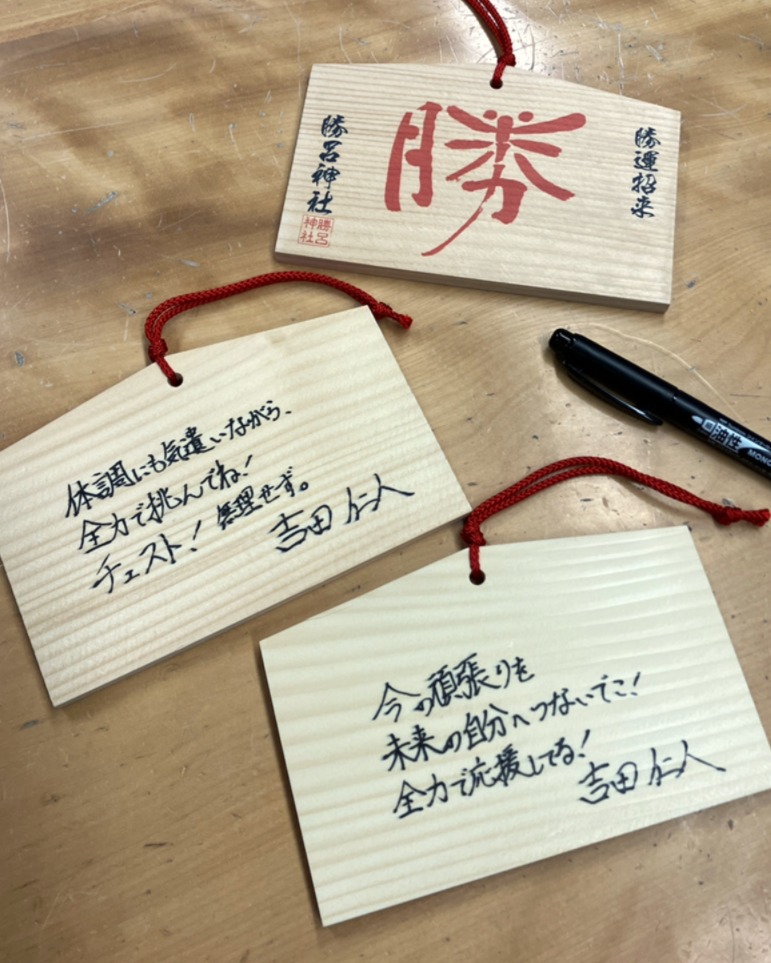 勝運招来
勝
勝呂神社
勝呂
神社
体調にも気遣いながら、
全力で挑んでね!
チェスト! 無理せず。
吉田 仁人
油性
MONO
今の頑張りを
未来の自分へつないでこ!
全力で応援してる!
吉田 仁人